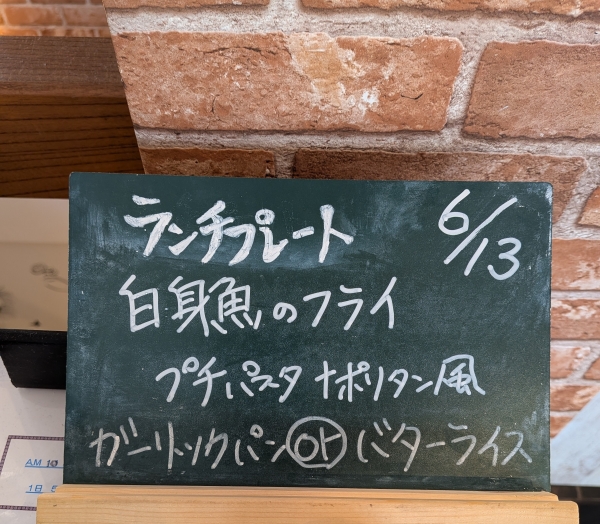 ランチプレート 6/13
白身魚のフライ
プチパスタ ナポリタン風
ガーリックパン or バターライス
AM 10
1日